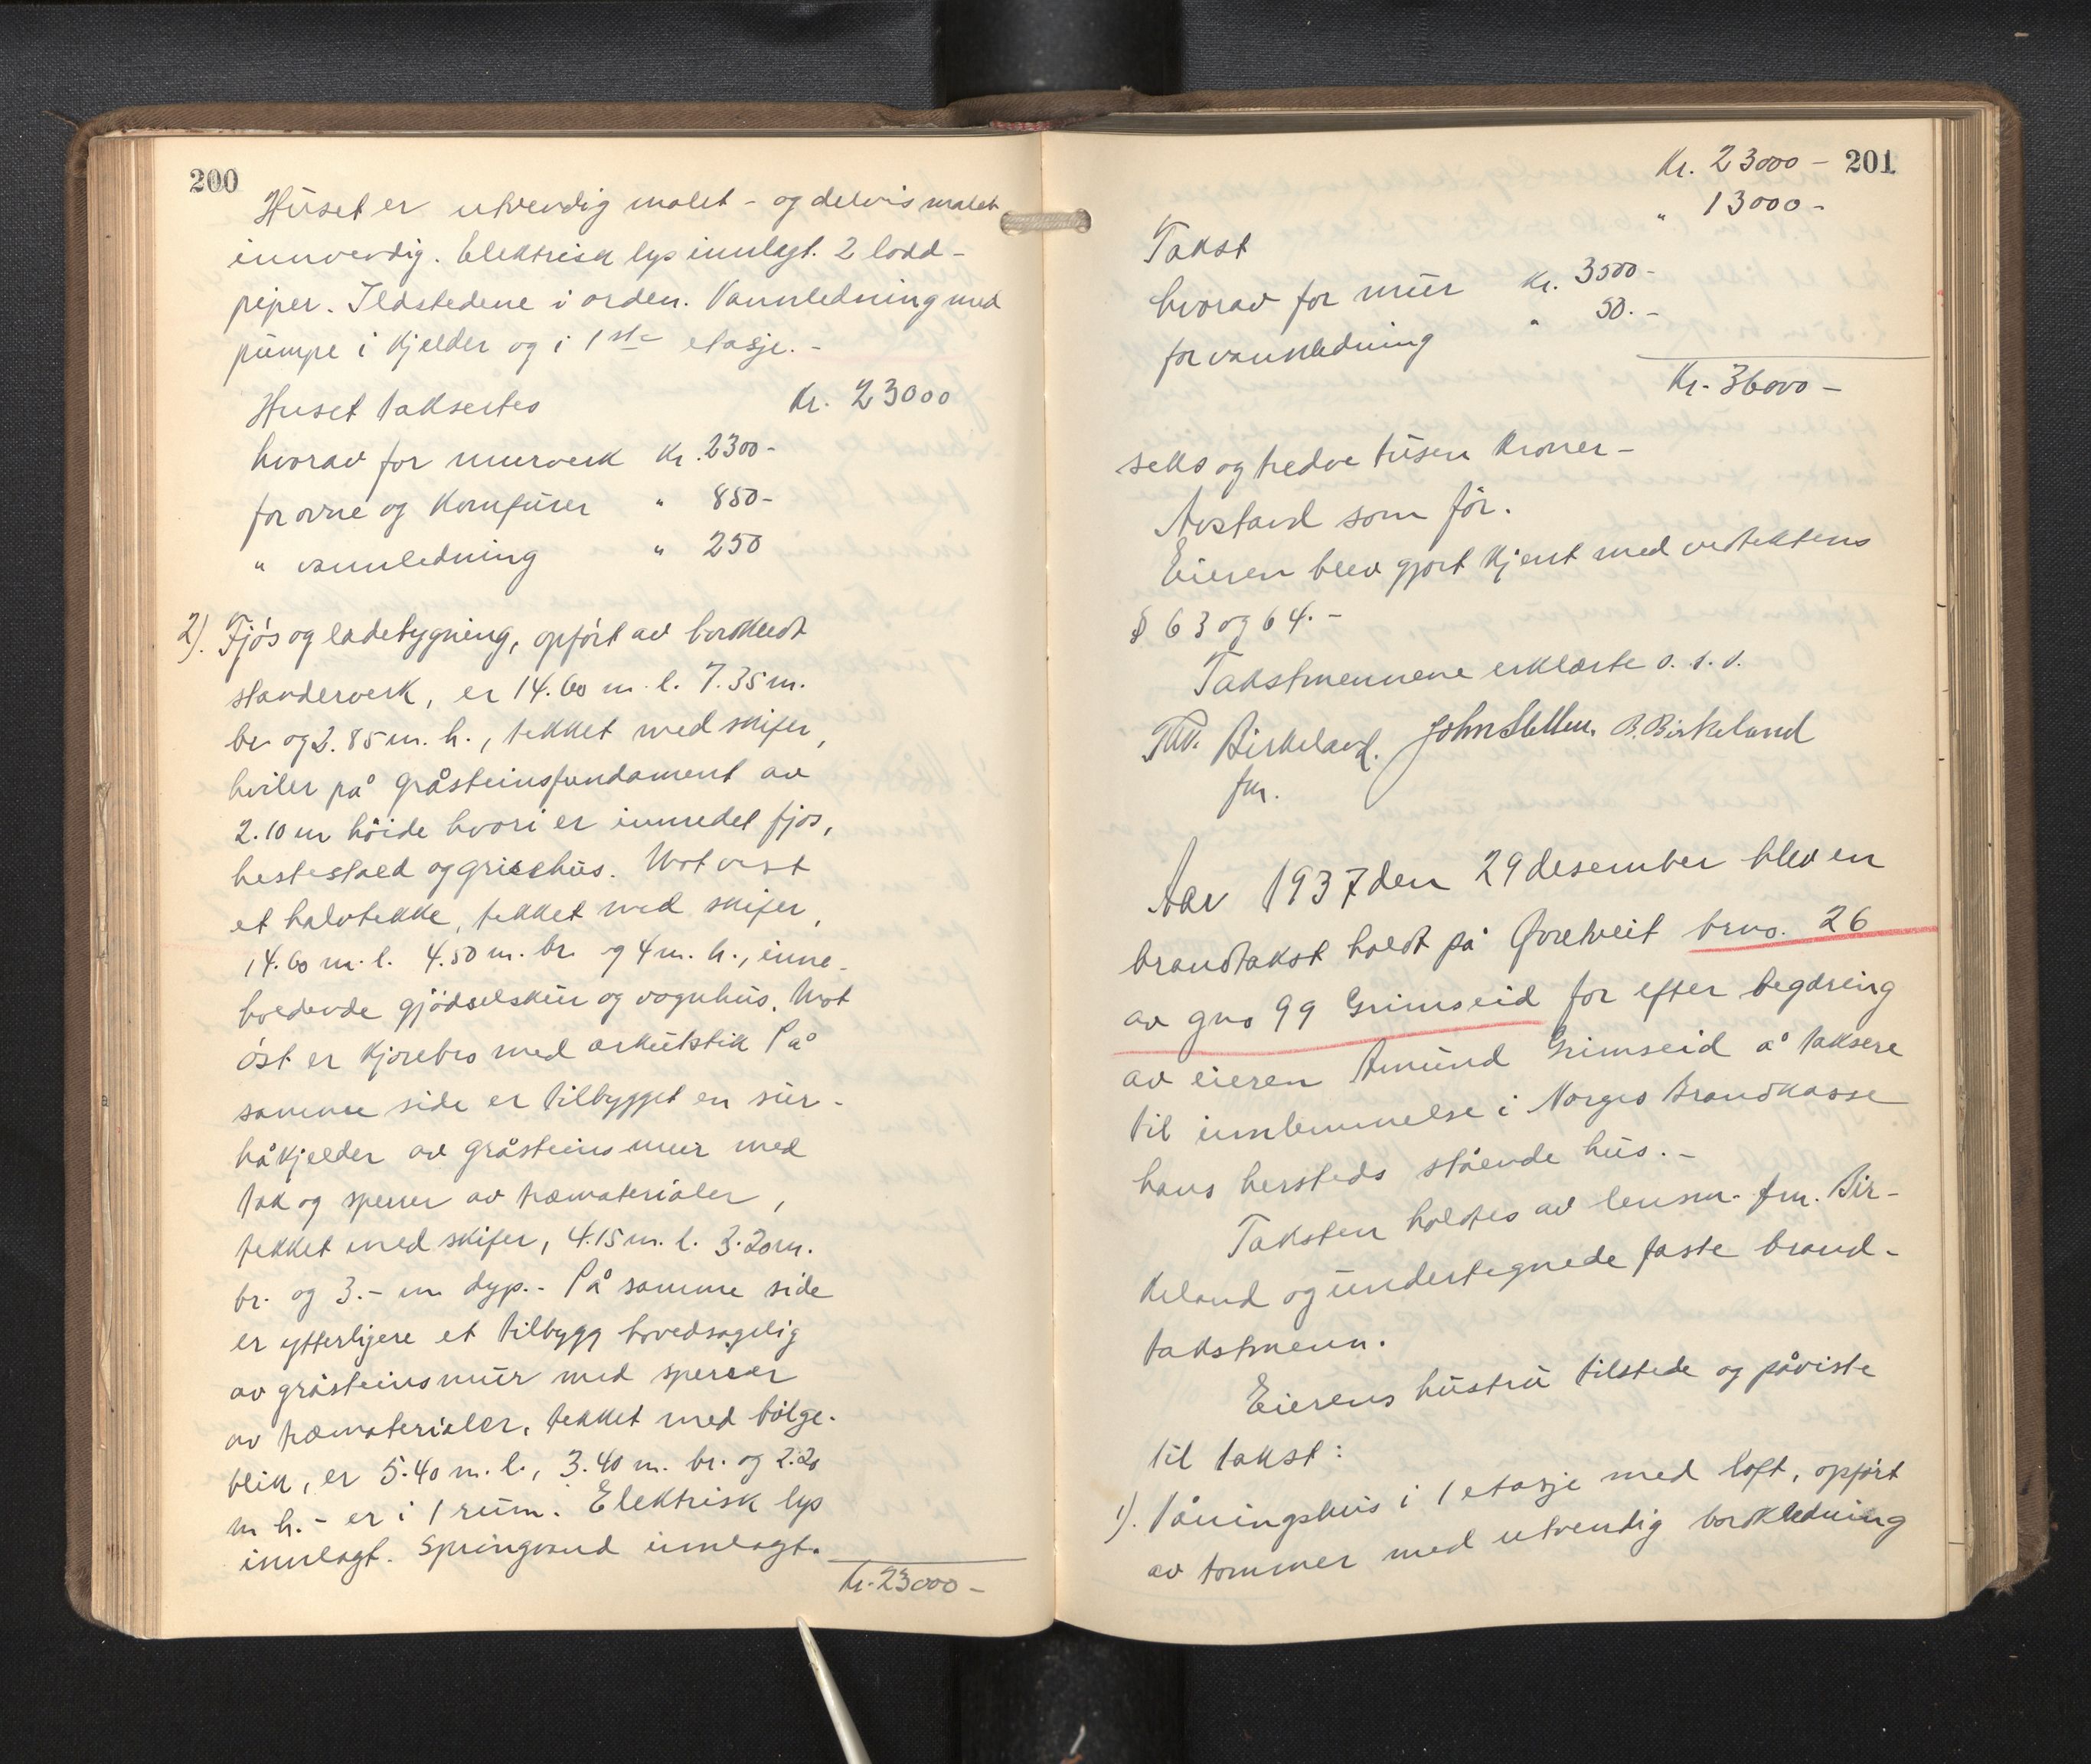 200
Huset er utvendig malet - og delvis malet
innvendig. Elektrisk lys innlagt. 2 lodd-
piper. Ildstedene i orden. Vannledning med
pumpe i kjelder og i 1ste etasje. -
Huset takseres Kr. 23000
hvorav for murverk Kr. 2300-
for ovne og Komfurer " 850-
" vannledning " 250
2). Fjøs og ladebygning, opført av bordklædt
stenderverk, er 14.60 m. l. 7.35 m.
br og 2.85 m. h., tekket med skifer,
hviler på gråsteinsfundament av
2.10 m høide hvori er innredet fjøs,
hestestald og grisehus. Mot vest
et halvtekke, tekket med skifer,
14.60 m. l. 4.50 m. br. og 4 m. h., inne-
holdende gjødselskur og vognhus. Mot
øst er kjørebro med arkutstik På
samme side er tilbygget en sur-
håkjelder av gråsteinsmur med
tak og sperrer av træmaterialer,
tekket med skifer, 4.15 m. l. 3.20 m.
br. og 3.- m dyp. - På samme side
er ytterligere et tilbygg hovedsagelig
av gråsteinsmur med sperrer
av træmaterialer, tekket med bølge-
blik, er 5.40 m. l., 3.40 m. br. og 2.20
m h. - er i 1 rum. Elektrisk lys
innlagt. Springvand innlagt.
Kr. 23000-
201
Kr. 23000 -
" 13000 -
Takst
hvorav for mur Kr. 3500-
for vannledning " 50. -
Kr. 36000 -
seks og tredve tusen Kroner -
Avstand som før.
Eieren blev gjort kjent med vedtektens
§ 63 og 64. -
Takstmennene erklærte o. s. v.
Birkeland. John B. Birkeland
fm.
Aar 1937 den 29 desember blev en
brandtakst holdt på Øvretveit brno. 26
av gno 99 Grimseid for efter begdæring
av eieren Amund Grimseid å taksere
til innlemmelse i Norges Brandkasse
hans hersteds stående hus. -
Taksten holdtes av lensm. fm. Bir-
keland og undertegnede faste brand-
takstmenn.
Eierens hustru tilstede og påviste
til takst:
1). Våningshus i 1 etasje med loft, opført
av tømmer med utvendig bordkledning